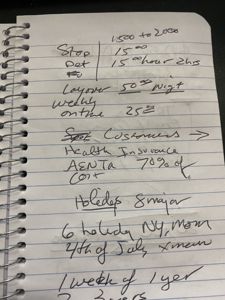 1500 to 2000
Stop 15⁰⁰
Det 15⁰⁰ hour 2hrs
Layover 50⁰⁰ Nigt
Weekly
ontime 25⁰⁰
Customers →
Health Insurance
AENTA 70% of
Cost
Holedays 8 major
6 holidy NY, Mem
4th of July xmas
1 week of 1 yer